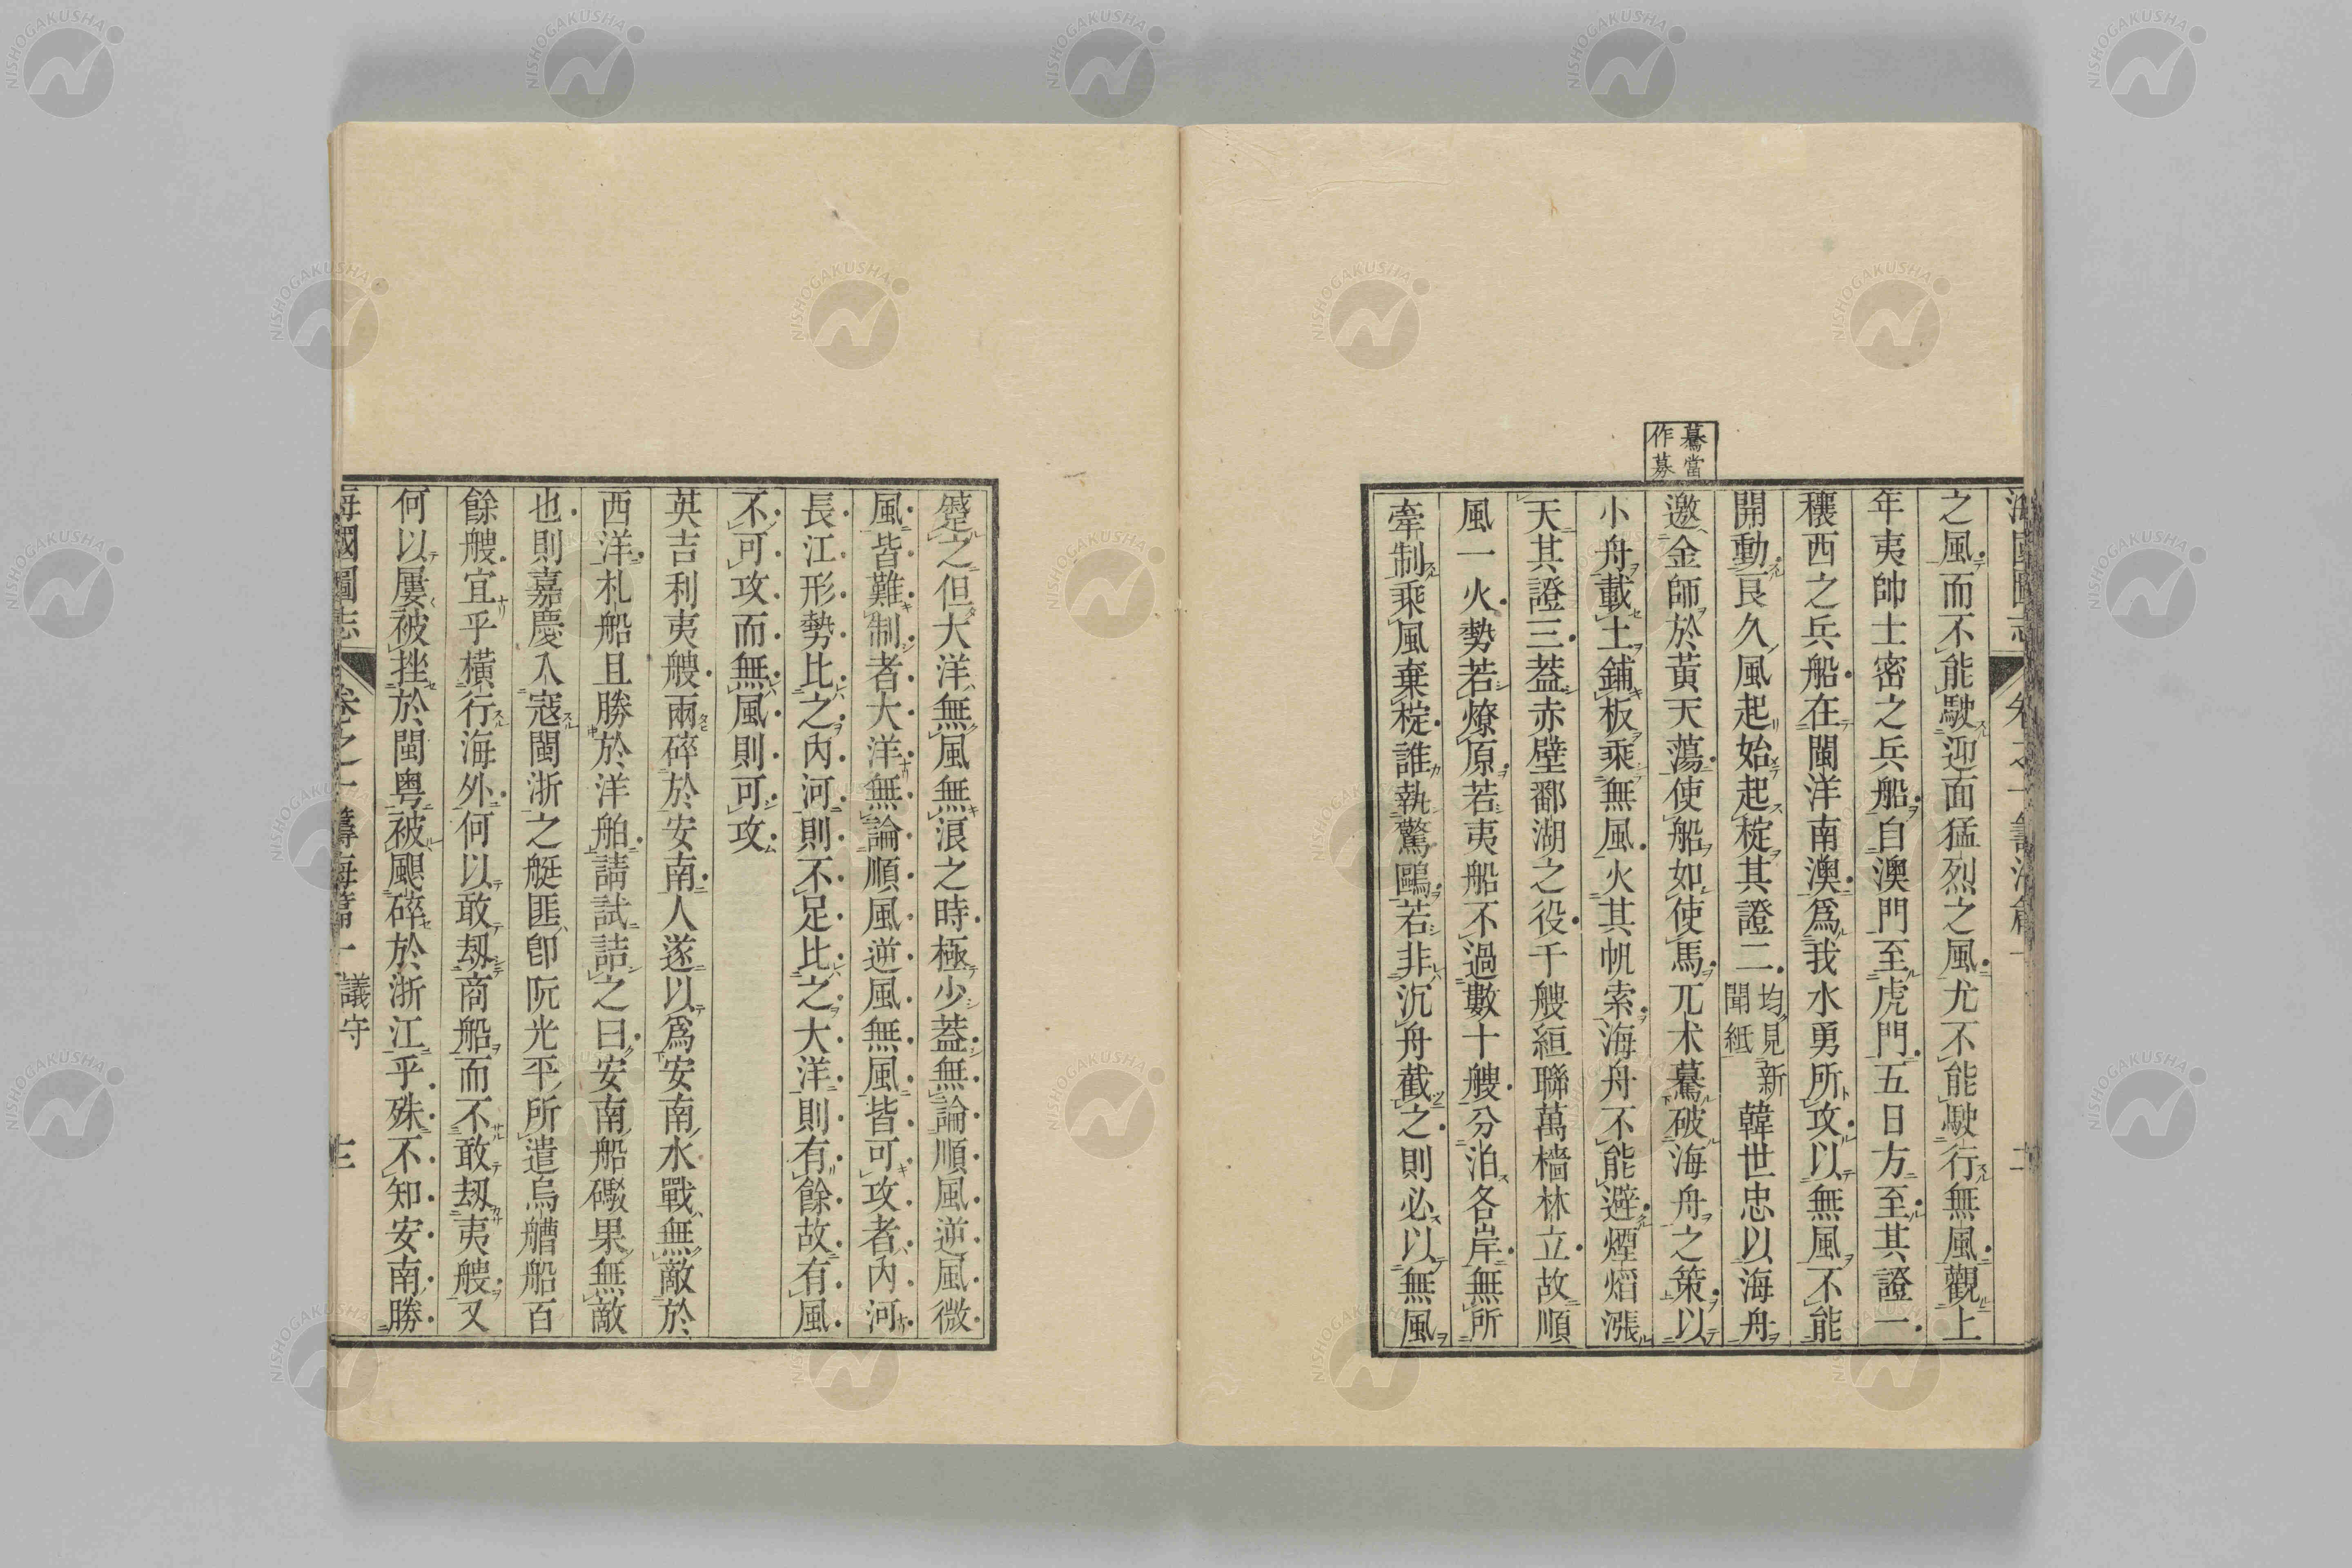 驀當
作募
海國圖志 卷之一 籌海篇一
之風而不能駛迎面猛烈之風尤不能駛行無風觀上
年夷帥士密之兵船自澳門至虎門五日方至其證一
穰西之兵船在閩洋南澳爲我水勇所攻以無風不能
開動良久風起始起椗其證二均見新聞紙韓世忠以海舟
邀金師於黃天蕩使船如使馬兀朮驀破海舟之策以
小舟載土鋪板乘無風火其帆索海舟不能避煙熖漲
天其證三葢赤壁鄱湖之役千艘絙聯萬檣林立故順
風一火勢若燎原若夷船不過數十艘分泊各岸無所
牽制乘風棄椗誰執驚鷗若非沉舟截之則必以無風
蹙之但大洋無風無浪之時極少葢無論順風逆風微
風皆難制者大洋無論順風逆風無風皆可攻者內河
長江形勢比之內河則不足比之大洋則有餘故有風
不可攻而無風則可攻
英吉利夷艘兩碎於安南人遂以爲安南水戰無敵於
西洋札船且勝於洋舶請試詰之曰安南船礟果無敵
也則嘉慶入寇閩浙之艇匪卽阮光平所遣烏艚船百
餘艘宜乎橫行海外何以敢刼商船而不敢刼夷艘又
何以屢被挫於閩粵被颶碎於浙江乎殊不知安南勝
海國圖志 卷之一 籌海篇一 議守 三
NISHOGAKUSHA